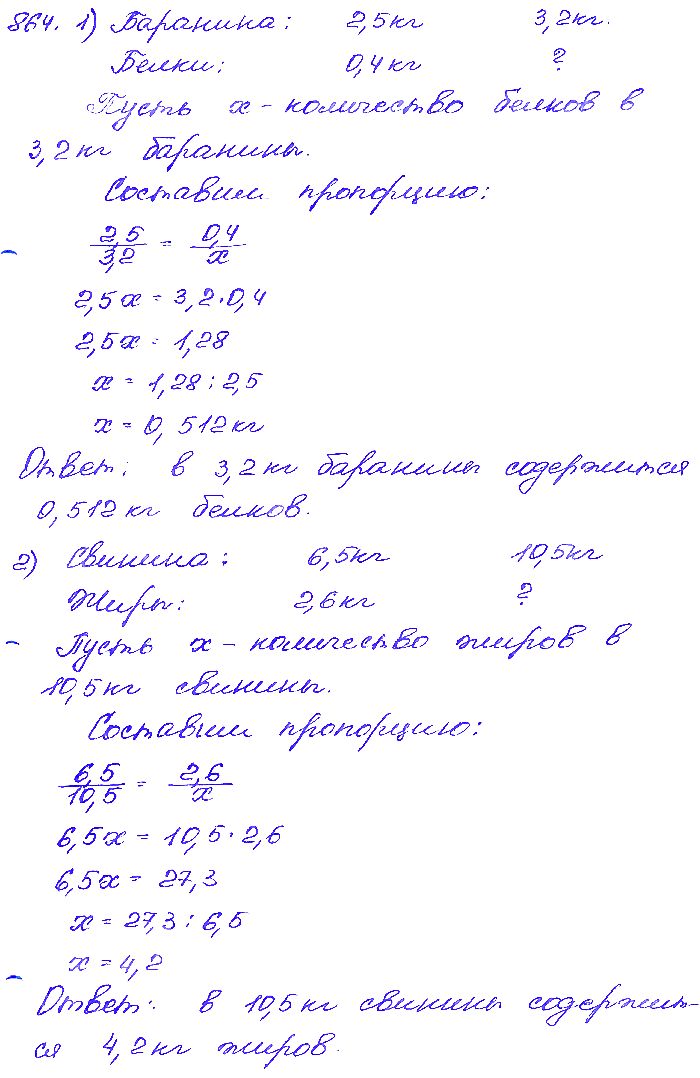 864. 1) Баранина: 2,5кг 3,2кг.
Белки: 0,4кг ?
Пусть х - количество белков в
3,2кг баранины.
Составим пропорцию:
2,5/3,2 = 0,4/х
2,5х = 3,2·0,4
2,5х = 1,28
х = 1,28 : 2,5
х = 0,512кг
Ответ: в 3,2кг баранины содержится
0,512кг белков.
2) Свинина: 6,5кг 10,5кг
Жиры: 2,6кг ?
Пусть х - количество жиров в
10,5кг свинины.
Составим пропорцию:
6,5/10,5 = 2,6/х
6,5х = 10,5·2,6
6,5х = 27,3
х = 27,3 : 6,5
х = 4,2
Ответ: в 10,5кг свинины содержит-
ся 4,2кг жиров.